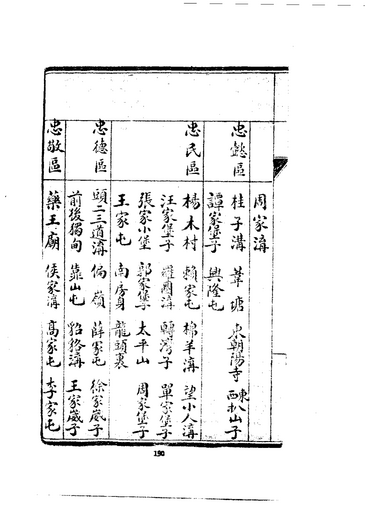 周家溝
忠懿區 桂子溝 葦塘 東朝陽寺 東西扒山子
譚家堡子 興隆屯
忠民區 楊木村 賴家屯 棉羊溝 望小人溝
汪家堡子 羅圈溝 轉灣子 單家堡子
張家小堡 郭家堡子 太平山 周家堡子
王家屯 南房身 龍頭裏
忠德區 頭二三道溝 偏嶺 薛家屯 徐家崴子
前後獨甸 靠山屯 王家崴子
忠敬區 藥王廟 侯家溝 高家屯 李家屯
190